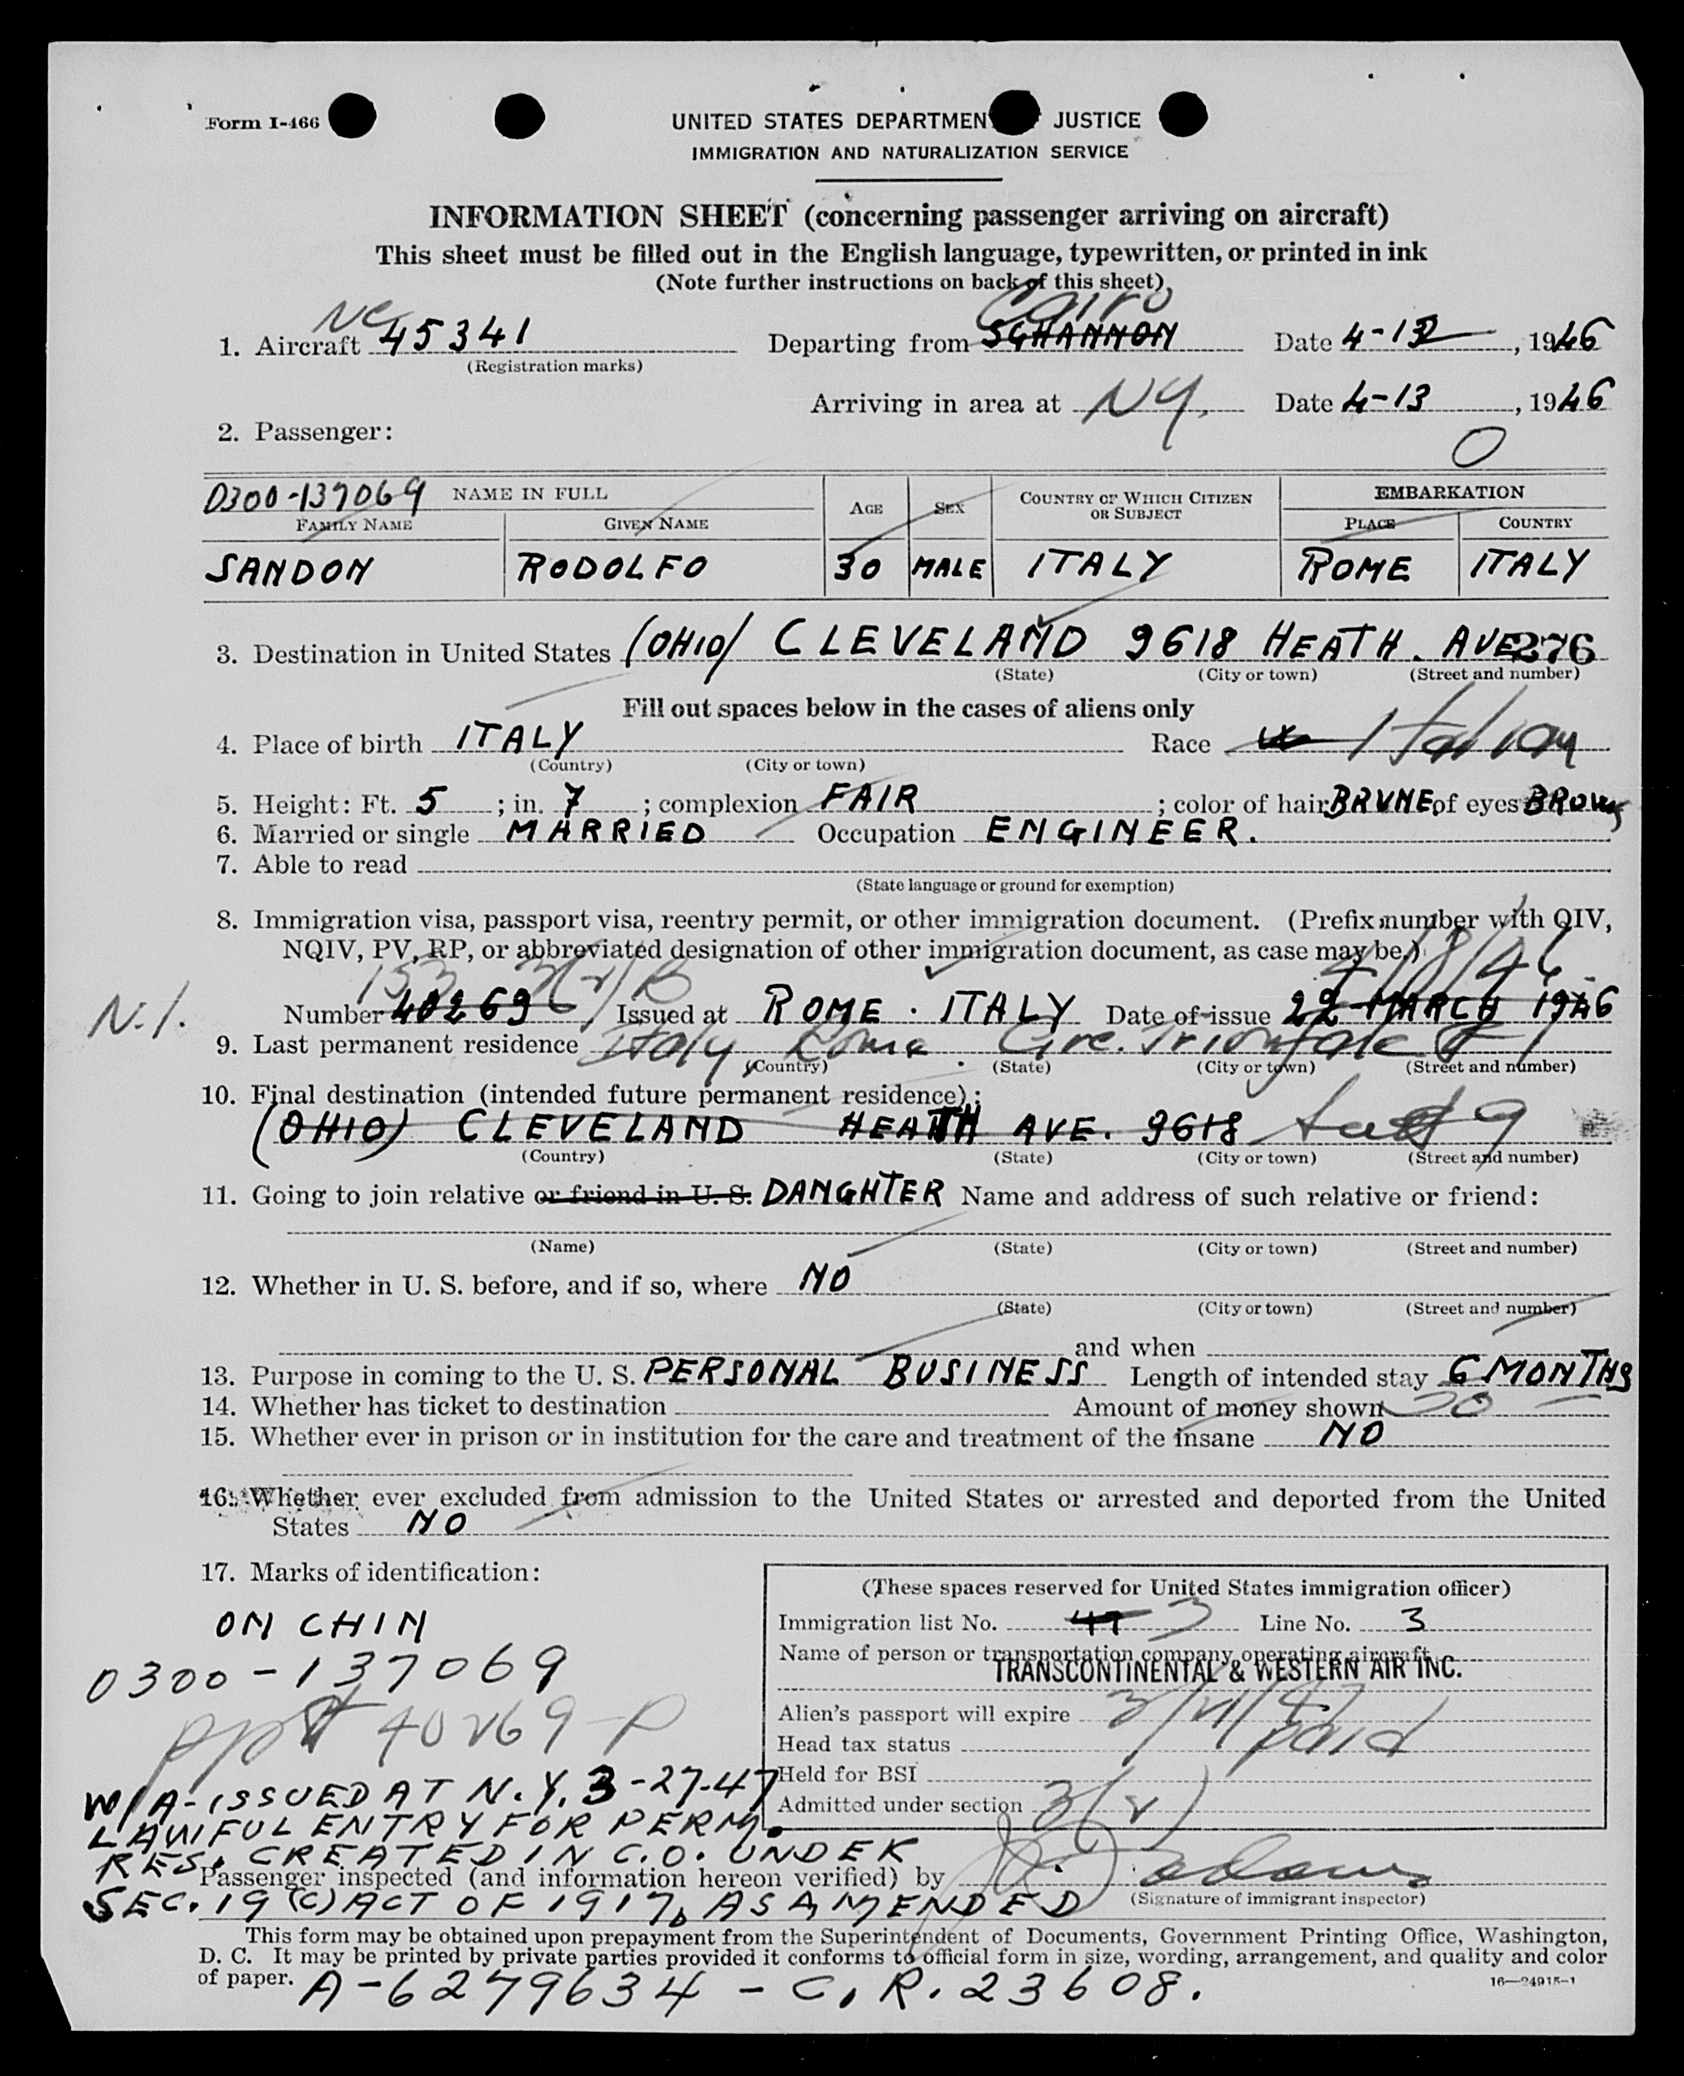 Form I-466
UNITED STATES DEPARTMEN JUSTICE
IMMIGRATION AND NATURALIZATION SERVICE
INFORMATION SHEET (concerning passenger arriving on aircraft)
This sheet must be filled out in the English language, typewritten, or printed in ink
(Note further instructions on back of this sheet)
NC Cairo
1. Aircraft 45341 Departing from SGHANNON Date 4-12, 1946
(Registration marks)
Arriving in area at NY. Date 4-13, 1946
2. Passenger: O
0300-137069 NAME IN FULL AGE SEX COUNTRY OF WHICH CITIZEN OR SUBJECT EMBARKATION
FAMILY NAME GIVEN NAME PLACE COUNTRY
SANDON RODOLFO 30 MALE ITALY ROME ITALY
3. Destination in United States (OHIO) CLEVELAND 9618 HEATH. AVE 276
(State) (City or town) (Street and number)
Fill out spaces below in the cases of aliens only
4. Place of birth ITALY Race Italian
(Country) (City or town)
5. Height: Ft. 5; in. 7; complexion FAIR; color of hair BRUNE, of eyes BROWN
6. Married or single MARRIED Occupation ENGINEER.
7. Able to read
(State language or ground for exemption)
8. Immigration visa, passport visa, reentry permit, or other immigration document. (Prefix number with QIV,
NQIV, PV, RP, or abbreviated designation of other immigration document, as case may be.)
153 3(2) B 4/8/46.
N.I. Number 40269 Issued at ROME. ITALY Date of issue 22 MARCH 1946
9. Last permanent residence Italy, Rome. Circ. Trionfale
(Country) (State) (City or town) (Street and number)
10. Final destination (intended future permanent residence):
(OHIO) CLEVELAND HEATH AVE. 9618
(Country) (State) (City or town) (Street and number)
11. Going to join relative or friend in U. S. DANGHTER Name and address of such relative or friend:
(Name) (State) (City or town) (Street and number)
12. Whether in U. S. before, and if so, where NO
(State) (City or town) (Street and number)
and when
13. Purpose in coming to the U. S. PERSONAL BUSINESS Length of intended stay 6 MONTHS
14. Whether has ticket to destination Amount of money shown 30 —
15. Whether ever in prison or in institution for the care and treatment of the insane NO
16. Whether ever excluded from admission to the United States or arrested and deported from the United
States NO
17. Marks of identification:
ON CHIN
0300-137069
ppt 40269-P
(These spaces reserved for United States immigration officer)
Immigration list No. 47 3 Line No. 3
Name of person or transportation company operating aircraft
TRANSCONTINENTAL & WESTERN AIR INC.
Alien's passport will expire 3/21/47
Head tax status paid
Held for BSI
Admitted under section 3(2)
W/A-ISSUED AT N.Y. 3-27-47
LAWFUL ENTRY FOR PERM.
RES. CREATED IN C.O. UNDER
Passenger inspected (and information hereon verified) by
SEC. 19 (C) ACT OF 1917, AS AMENDED
(Signature of immigrant inspector)
This form may be obtained upon prepayment from the Superintendent of Documents, Government Printing Office, Washington,
D. C. It may be printed by private parties provided it conforms to official form in size, wording, arrangement, and quality and color
of paper. 16—24915-1
A-6279634 - C.R. 23608.